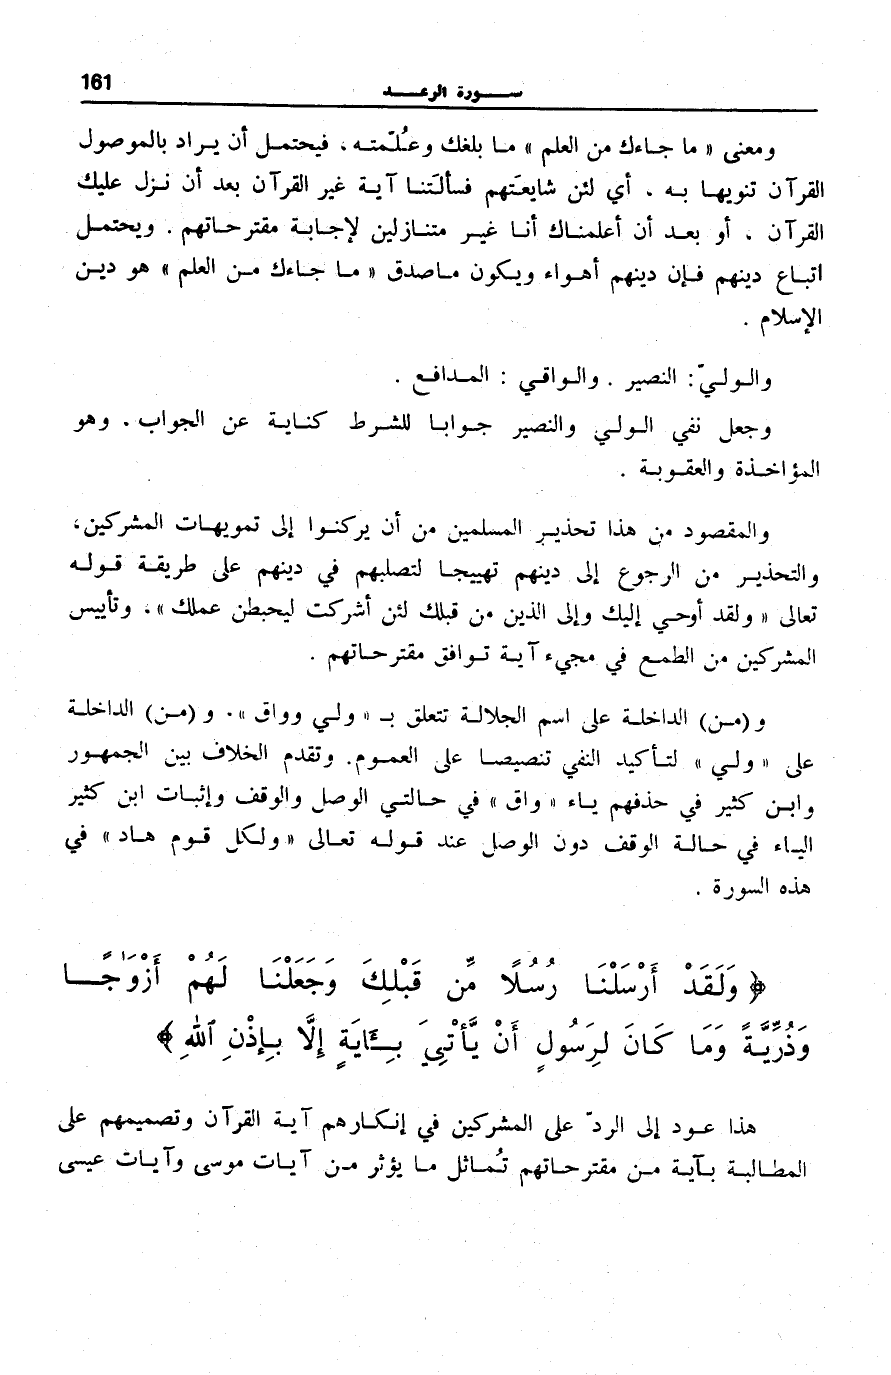 161
سورة الرعد
ومعنى « ما جاءك من العلم » ما بلغك وعُلّمته ، فيحتمل أن يراد بالموصول
القرآن تنويها به . أي لئن شايعتهم فسألتنا آية غير القرآن بعد أن نزل عليك
القرآن ، أو بعد أن أعلمناك أنا غير متنازلين لإجابة مقترحاتهم . ويحتمل
اتباع دينهم فإن دينهم أهواء ويكون ماصدق « ما جاءك من العلم » هو دين
الإسلام .
والوليّ : النصير . والواقي : المدافع .
وجعل نفي الولي والنصير جوابا للشرط كناية عن الجواب . وهو
المؤاخذة والعقوبة .
والمقصود من هذا تحذير المسلمين من أن يركنوا إلى تمويهات المشركين،
والتحذير من الرجوع إلى دينهم تهييجا لتصلبهم في دينهم على طريقة قوله
تعالى « ولقد أوحي إليك وإلى الذين من قبلك لئن أشركت ليحبطن عملك » ، وتأييس
المشركين من الطمع في مجيء آية توافق مقترحاتهم .
و (من) الداخلة على اسم الجلالة تتعلق بـ « ولي وواق » . و (من) الداخلة
على « ولي » لتأكيد النفي تنصيصا على العموم. وتقدم الخلاف بين الجمهور
وابن كثير في حذفهم ياء « واق » في حالتي الوصل والوقف وإثبات ابن كثير
الياء في حالة الوقف دون الوصل عند قوله تعالى « ولكل قوم هاد » في
هذه السورة .
﴿ وَلَقَدْ أَرْسَلْنَا رُسُلًا مِّن قَبْلِكَ وَجَعَلْنَا لَهُمْ أَزْوَٰجًا
وَذُرِّيَّةً وَمَا كَانَ لِرَسُولٍ أَنْ يَّأْتِيَ بِـَٔايَةٍ إِلَّا بِإِذْنِ ٱللهِ ﴾
هذا عود إلى الردّ على المشركين في إنكارهم آية القرآن وتصميمهم على
المطالبة بآية من مقترحاتهم تُماثل ما يؤثر من آيات موسى وآيات عيسى